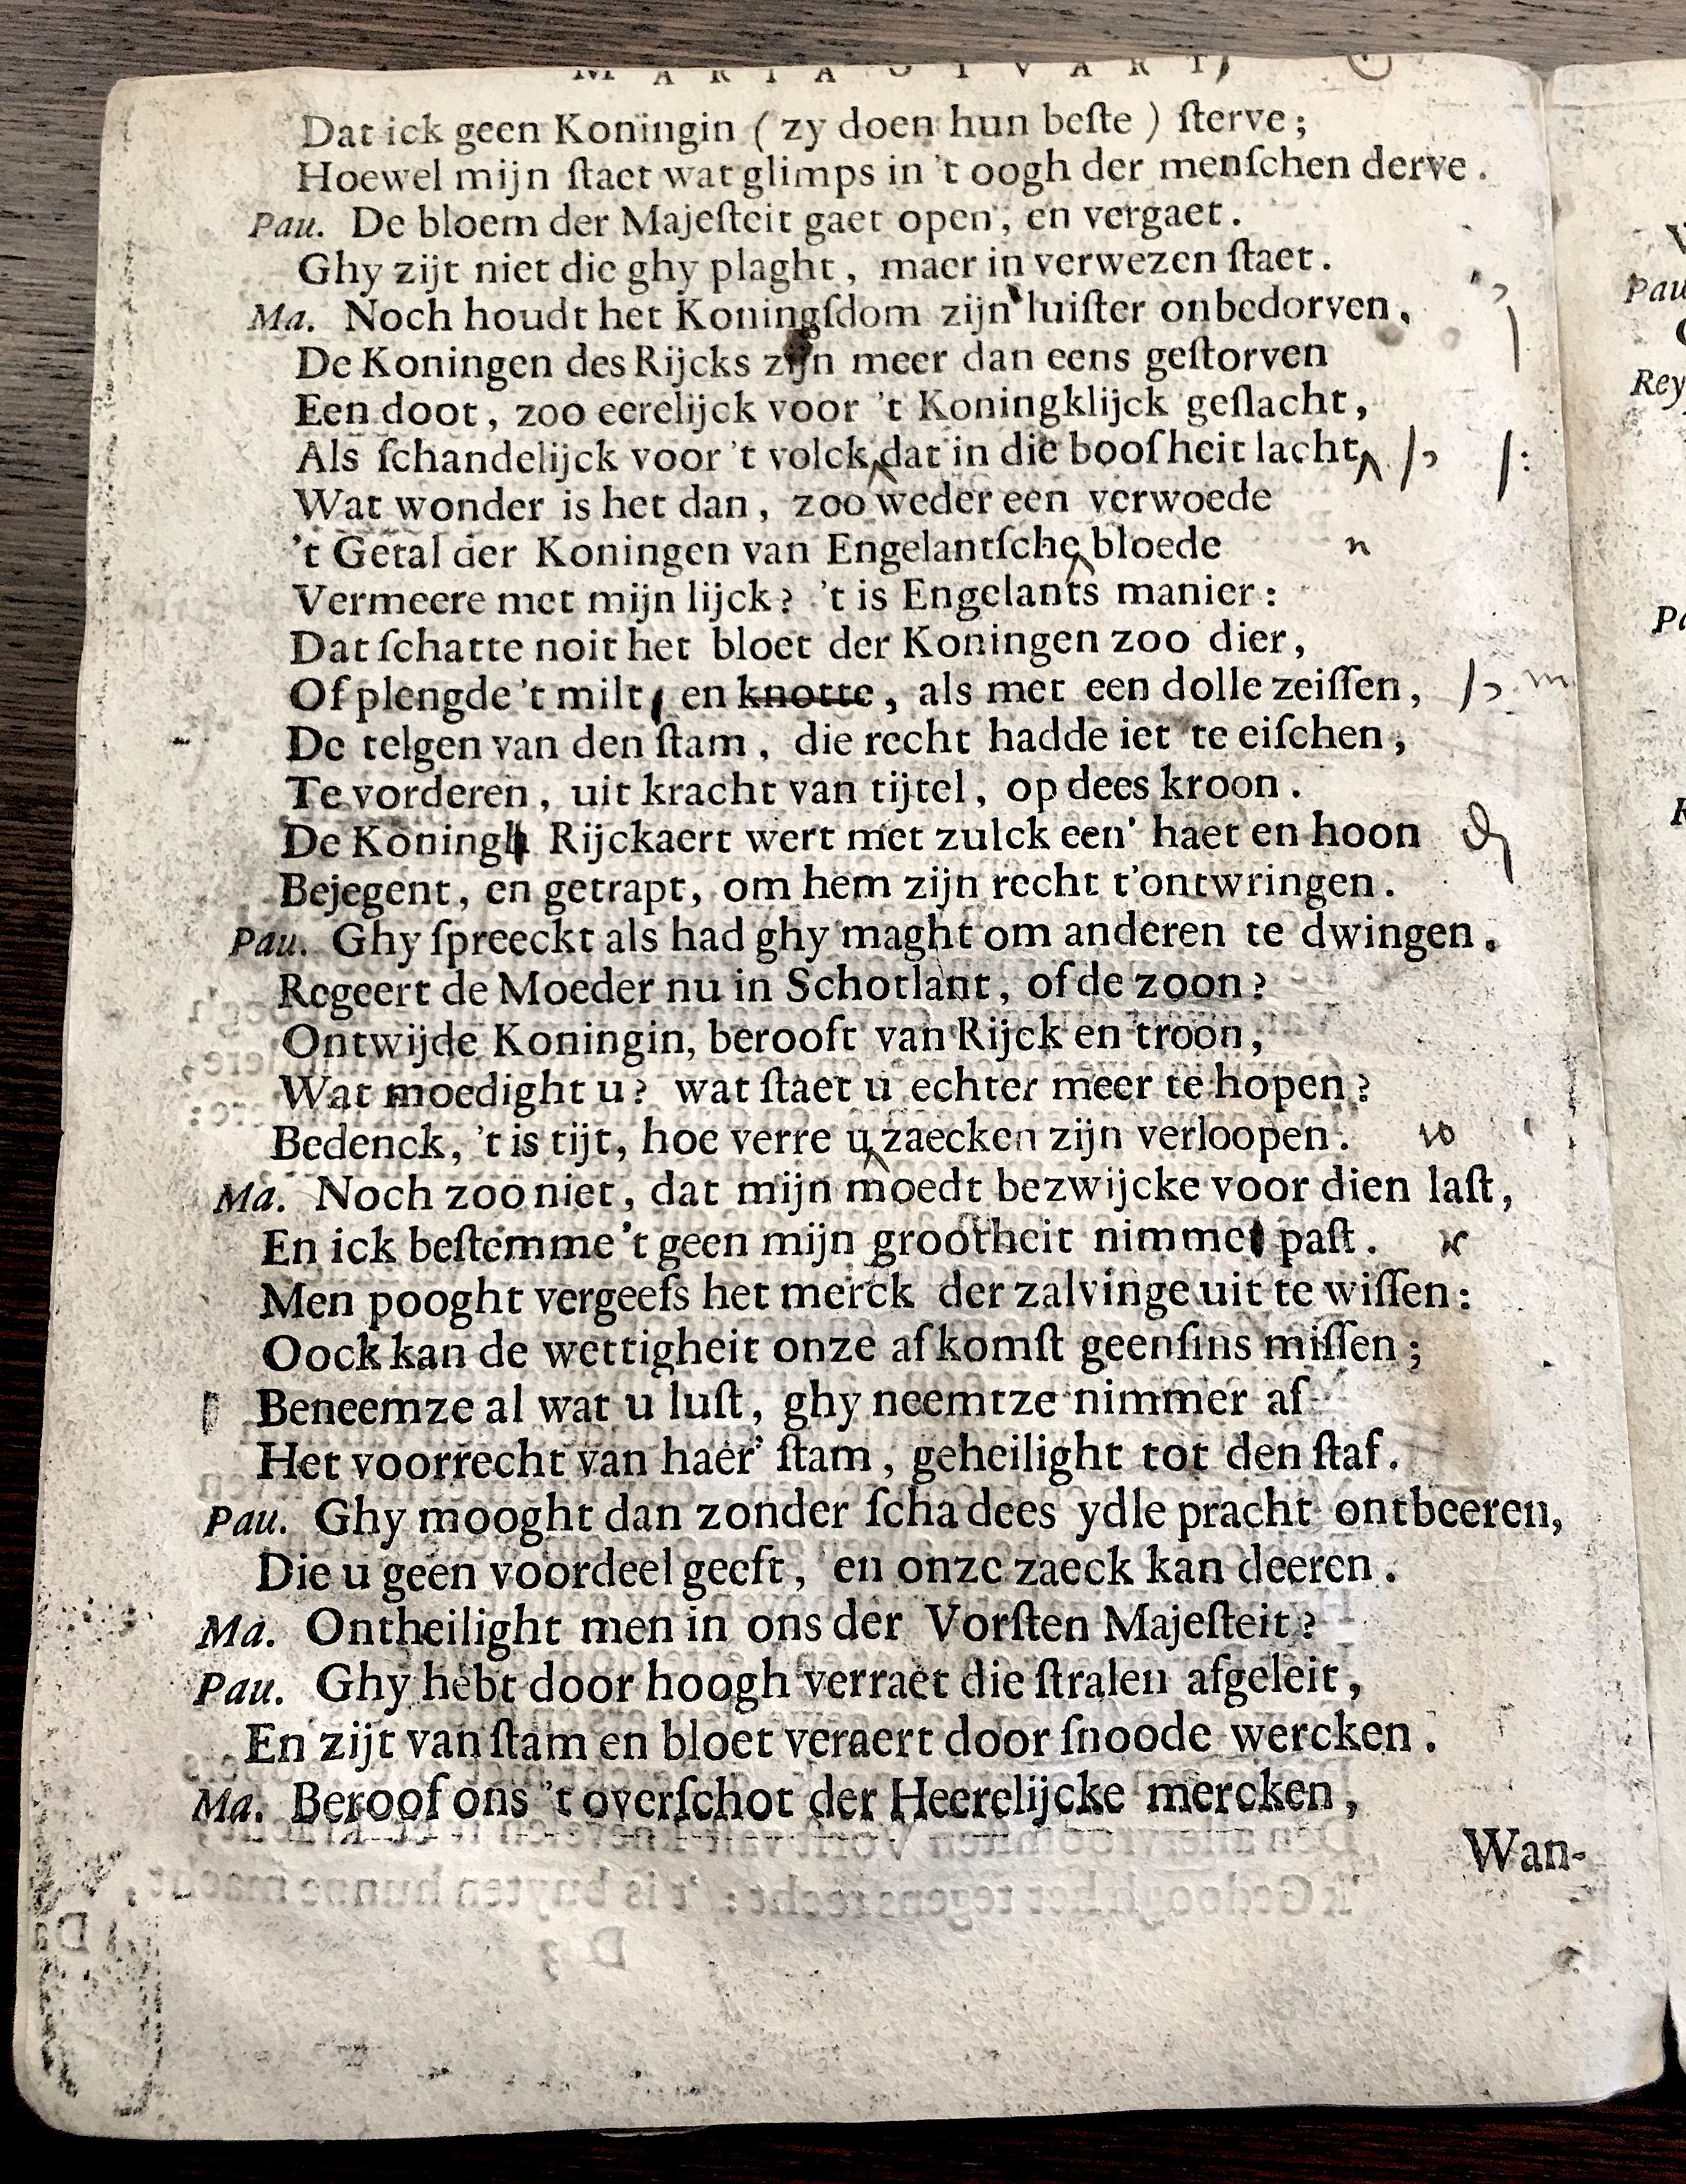 MARIA STVART,
Dat ick geen Koningin ( zy doen hun beſte ) ſterve ;
Hoewel mijn ſtaet wat glimps in 't oogh der menſchen derve .
Pau. De bloem der Majeſteit gaet open , en vergaet .
Ghy zijt niet die ghy plaght , maer in verwezen ſtaet .
Ma. Noch houdt het Koningſdom zijn luiſter onbedorven ,
De Koningen des Rijcks zijn meer dan eens geſtorven
Een doot , zoo eerelijck voor 't Koningklijck geſlacht ,
Als ſchandelijck voor 't volck dat in die boofheit lacht
Wat wonder is het dan , zoo weder een verwoede
't Getal der Koningen van Engelantſche bloede n
Vermeere met mijn lijck ? 't is Engelants manier :
Dat ſchatte noit het bloet der Koningen zoo dier ,
Of plengde 't milt , en knotte , als met een dolle zeiſſen , m
De telgen van den ſtam , die recht hadde iet te eiſchen ,
Te vorderen , uit kracht van tijtel , op dees kroon .
De Koningh Rijckaert wert met zulck een' haet en hoon
Bejegent , en getrapt , om hem zijn recht t'ontwringen .
Pau. Ghy ſpreeckt als had ghy maght om anderen te dwingen .
Regeert de Moeder nu in Schotlant , of de zoon ?
Ontwijde Koningin, berooft van Rijck en troon ,
Wat moedight u ? wat ſtaet u echter meer te hopen ?
Bedenck, 't is tijt, hoe verre u zaecken zijn verloopen . w
Ma. Noch zoo niet , dat mijn moedt bezwijcke voor dien laſt ,
En ick beſtemme 't geen mijn grootheit nimmet paſt . r
Men pooght vergeefs het merck der zalvinge uit te wiſſen :
Oock kan de wettigheit onze afkomſt geenſins miſſen ;
Beneemze al wat u luſt , ghy neemtze nimmer af
Het voorrecht van haer' ſtam , geheilight tot den ſtaf .
Pau. Ghy mooght dan zonder ſcha dees ydle pracht ontbeeren,
Die u geen voordeel geeft , en onze zaeck kan deeren .
Ma. Ontheilight men in ons der Vorſten Majeſteit ?
Pau. Ghy hebt door hoogh verraet die ſtralen afgeleit ,
En zijt van ſtam en bloet veraert door ſnoode wercken .
Ma. Beroof ons 't overſchot der Heerelijcke mercken ,
Wan-